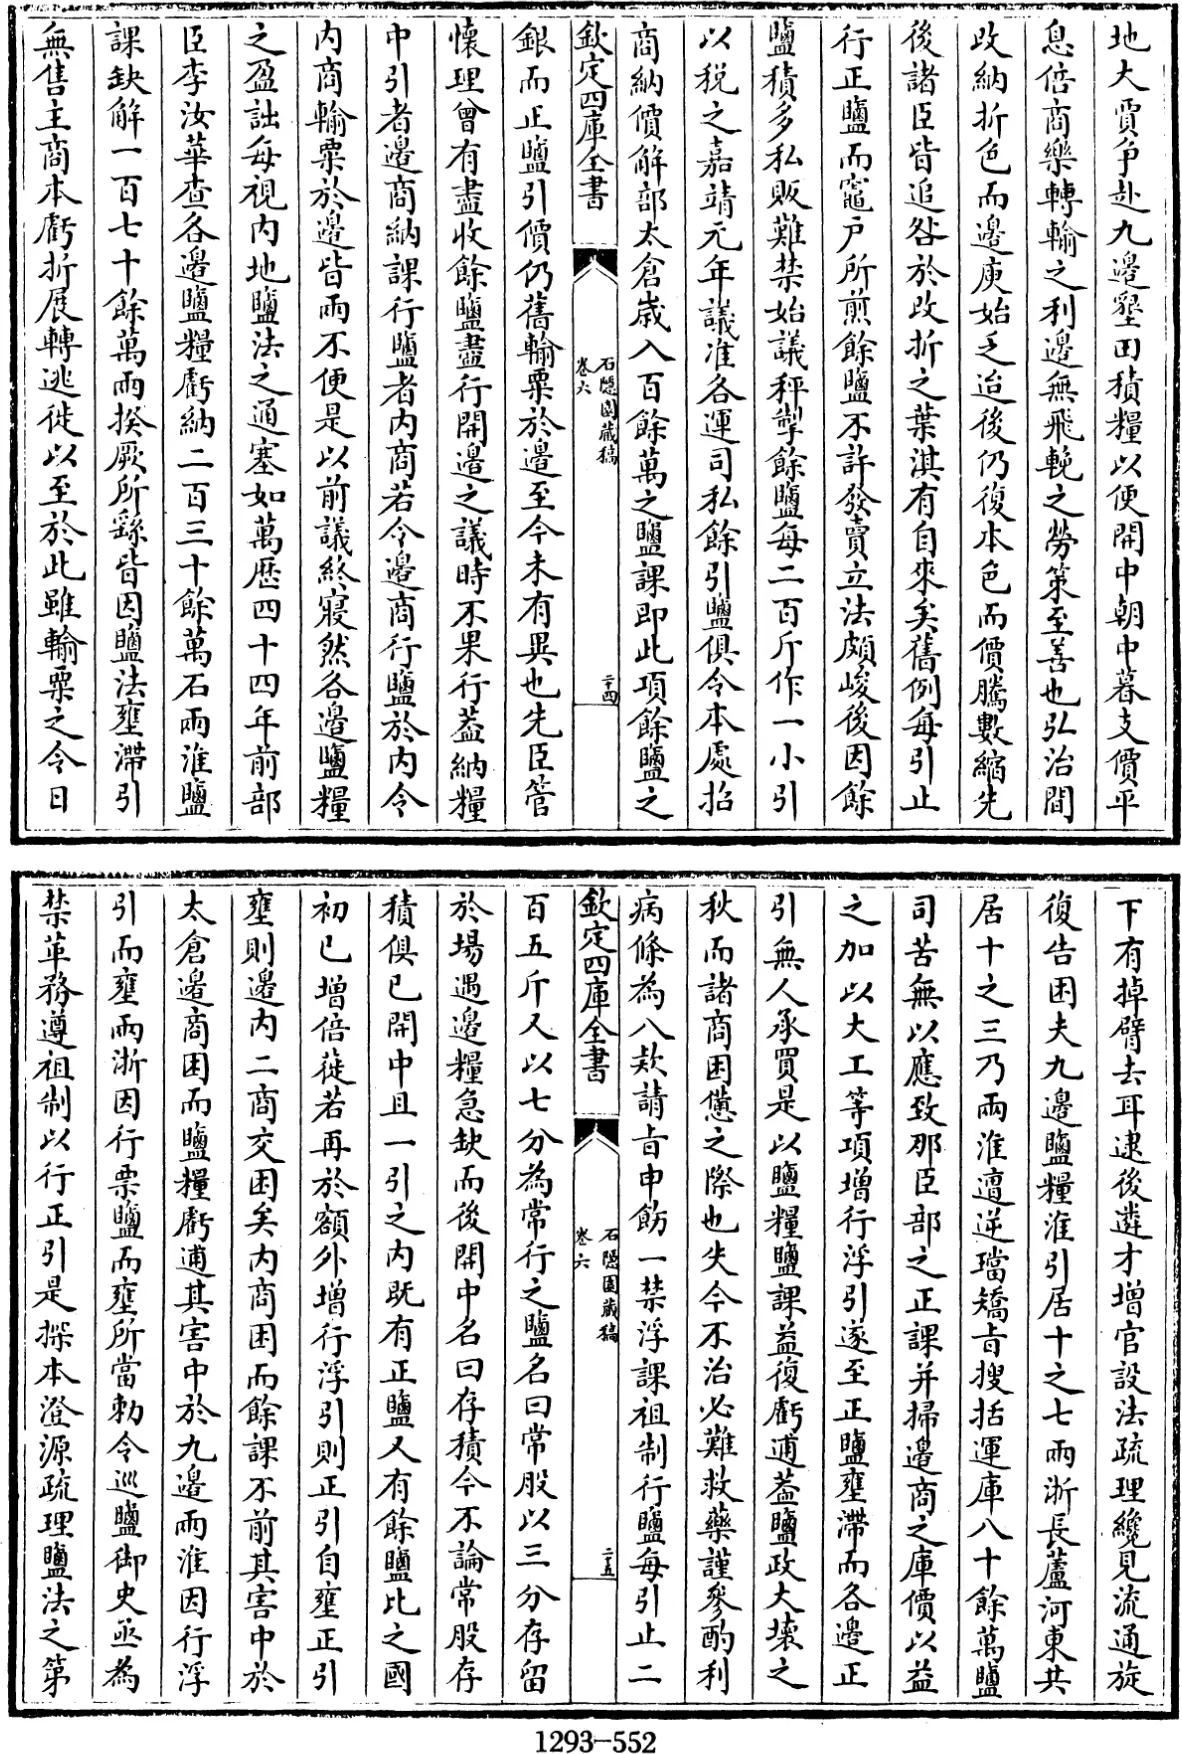 地大賈争赴九邉墾田積糧以便開中朝中暮支價平
息倍商樂轉輸之利邉無飛輓之勞策至善也弘治間
改納折色而邉庾始乏迨後仍復本色而價騰數縮先
後諸臣皆追咎於改折之葉淇有自來矣舊例每引止
行正鹽而竈户所煎餘鹽不許發賣立法頗峻後因餘
鹽積多私販難禁始議秤掣餘鹽每二百斤作一小引
以税之嘉靖元年議准各運司私餘引鹽俱令本處招
商納價解部太倉嵗入百餘萬之鹽課即此項餘鹽之
欽定四庫全書
石隱園藏稿
卷六
二十四
銀而正鹽引價仍舊輸粟於邉至今未有異也先臣管
懷理曾有盡收餘鹽盡行開邉之議時不果行葢納糧
中引者邉商納課行鹽者内商若令邉商行鹽於内令
内商輸粟於邉皆兩不便是以前議終寢然各邉鹽糧
之盈詘每視内地鹽法之通塞如萬厯四十四年前部
臣李汝華查各邉鹽糧虧納二百三十餘萬石兩淮鹽
課缺解一百七十餘萬兩揆厥所繇皆因鹽法壅滯引
無售主商本虧折展轉逃徙以至於此雖輸粟之令日
下有掉臂去耳逮後遴才増官設法疏理纔見流通旋
復告困夫九邉鹽糧淮引居十之七兩浙長蘆河東共
居十之三乃兩淮邅逆璫矯㫖搜括運庫八十餘萬鹽
司苦無以應致那臣部之正課并掃邉商之庫價以益
之加以大工等項増行浮引遂至正鹽壅滯而各邉正
引無人承買是以鹽糧鹽課益復虧逋葢鹽政大壞之
秋而諸商困憊之際也失今不治必難救藥謹參酌利
病條為八欵請㫖申飭一禁浮課祖制行鹽每引止二
欽定四庫全書
石隱園藏稿
卷六
二十五
百五斤又以七分為常行之鹽名曰常股以三分存留
於塲遇邉糧急缺而後開中名曰存積今不論常股存
積俱已開中且一引之内既有正鹽又有餘鹽比之國
初已増倍蓰若再於額外増行浮引則正引自壅正引
壅則邉内二商交困矣内商困而餘課不前其害中於
太倉邉商困而鹽糧虧逋其害中於九邉兩淮因行浮
引而壅兩浙因行票鹽而壅所當勅令巡鹽御史亟為
禁革務遵祖制以行正引是探本澄源疏理鹽法之第
1293—552